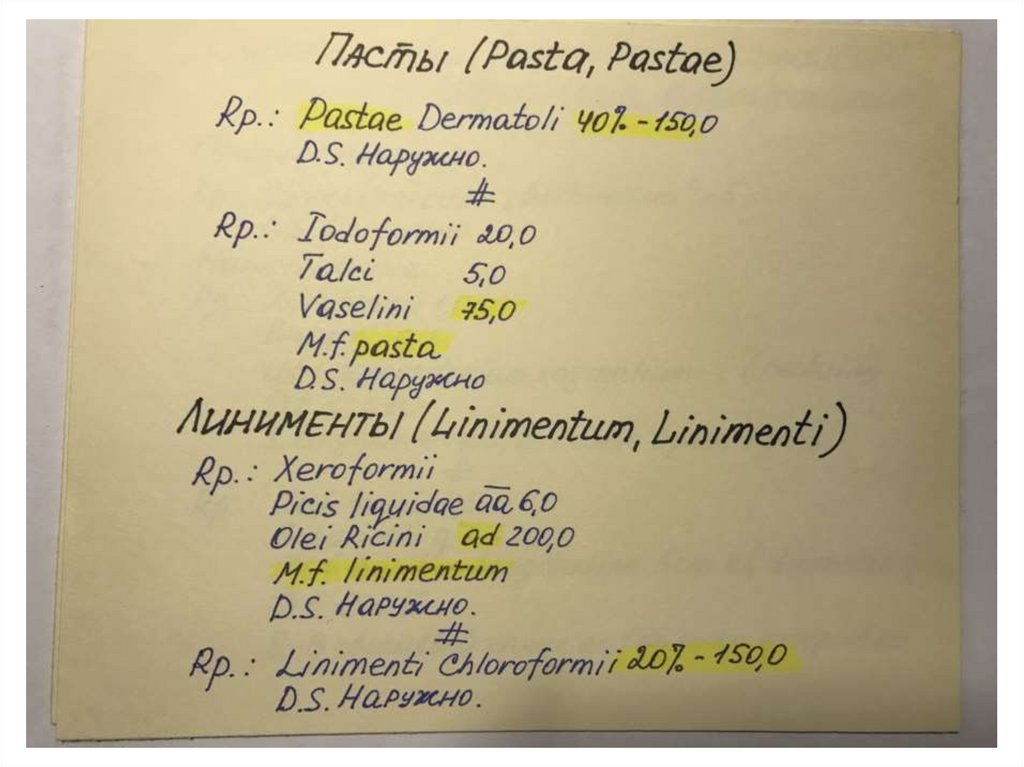 Пасты (Pasta, Pastae)
Rp.: Pastae Dermatoli 40% - 150,0
D.S. Наружно.
#
Rp.: Iodoformii 20,0
Talci 5,0
Vaselini 75,0
M.f. pasta
D.S. Наружно
Линименты (Linimentum, Linimenti)
Rp.: Xeroformii
Picis liquidae a̅a̅ 6,0
Olei Ricini ad 200,0
M.f. linimentum
D.S. Наружно.
#
Rp.: Linimenti Chloroformii 20% - 150,0
D.S. Наружно.